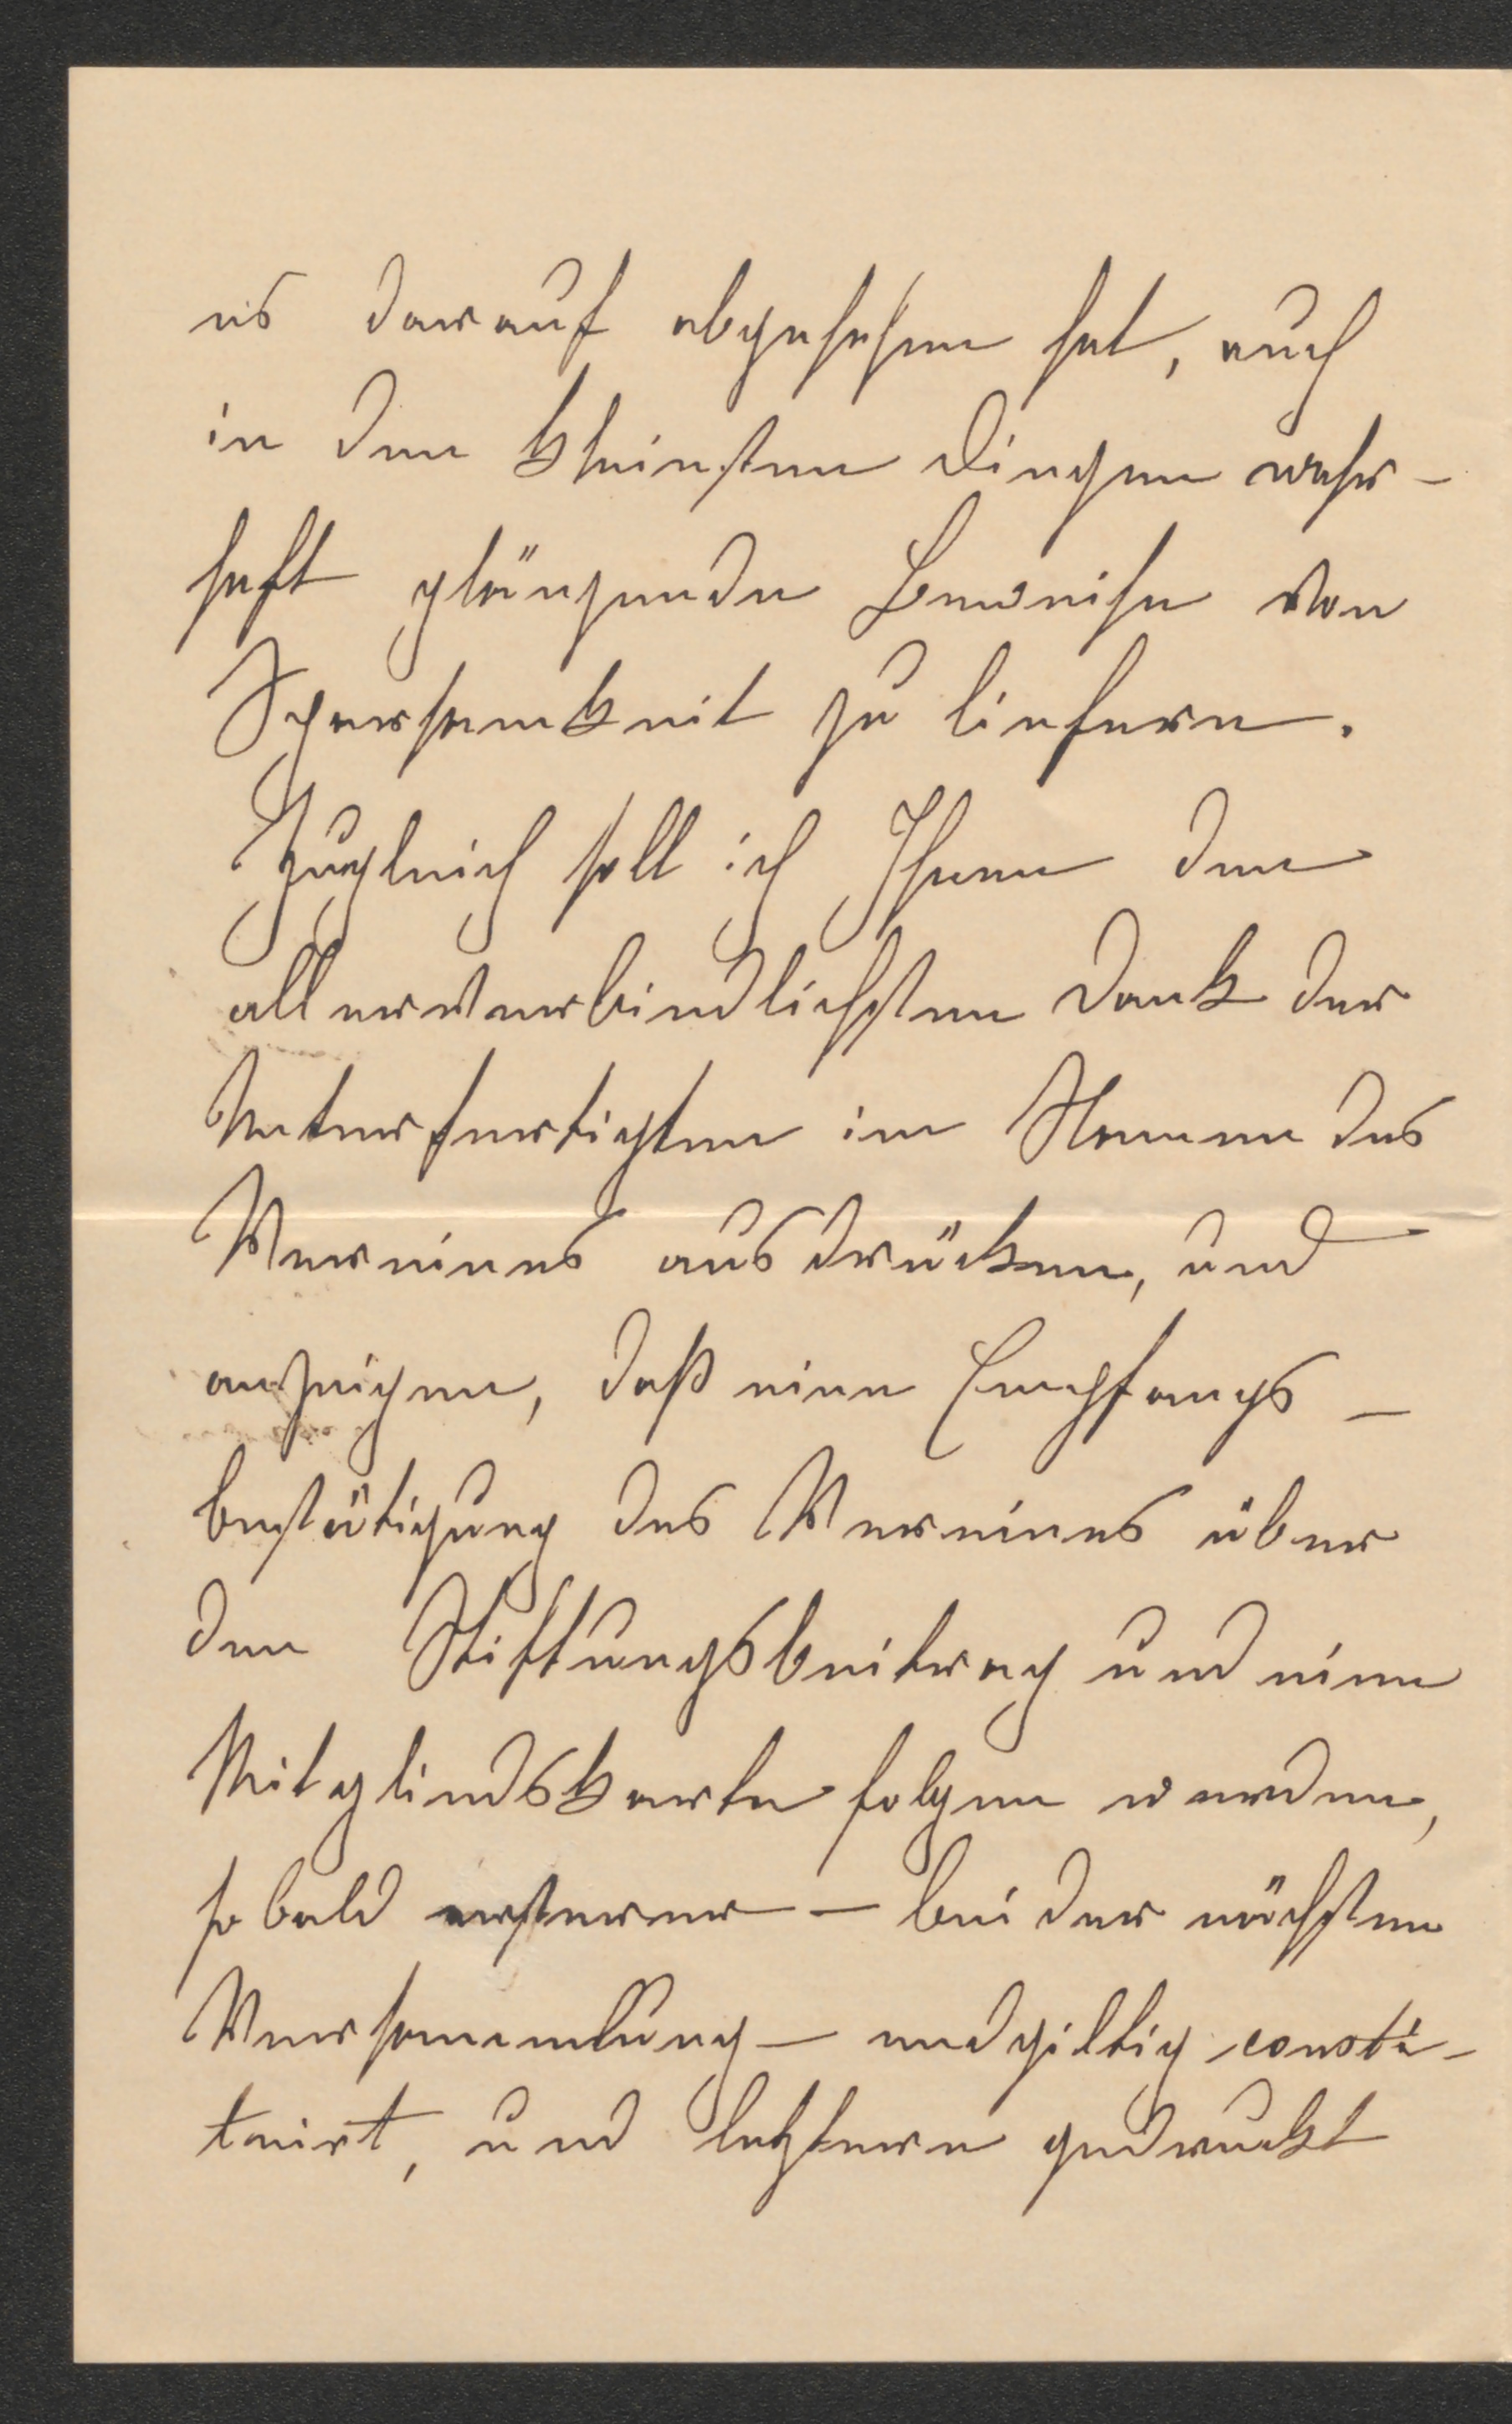 es darauf abgesehen hat, auch
in den kleinsten Dingen wahr-
haft glänzende Beweise von
Sparsamkeit zu liefern.
Zugleich soll ich Ihnen den
allerverbindlichsten Dank der
Unterfertigten im Namen des
Vereines ausdrücken, und
anzeigen, daß eine Empfangs-
bestätigung des Vereines über
den Stiftungsbeitrag und eine
Mitgliedskarte folgen werden,
sobald ersterer – bei der nächsten
Versammlung – endgiltig consti-
tuirt, und letztere gedruckt